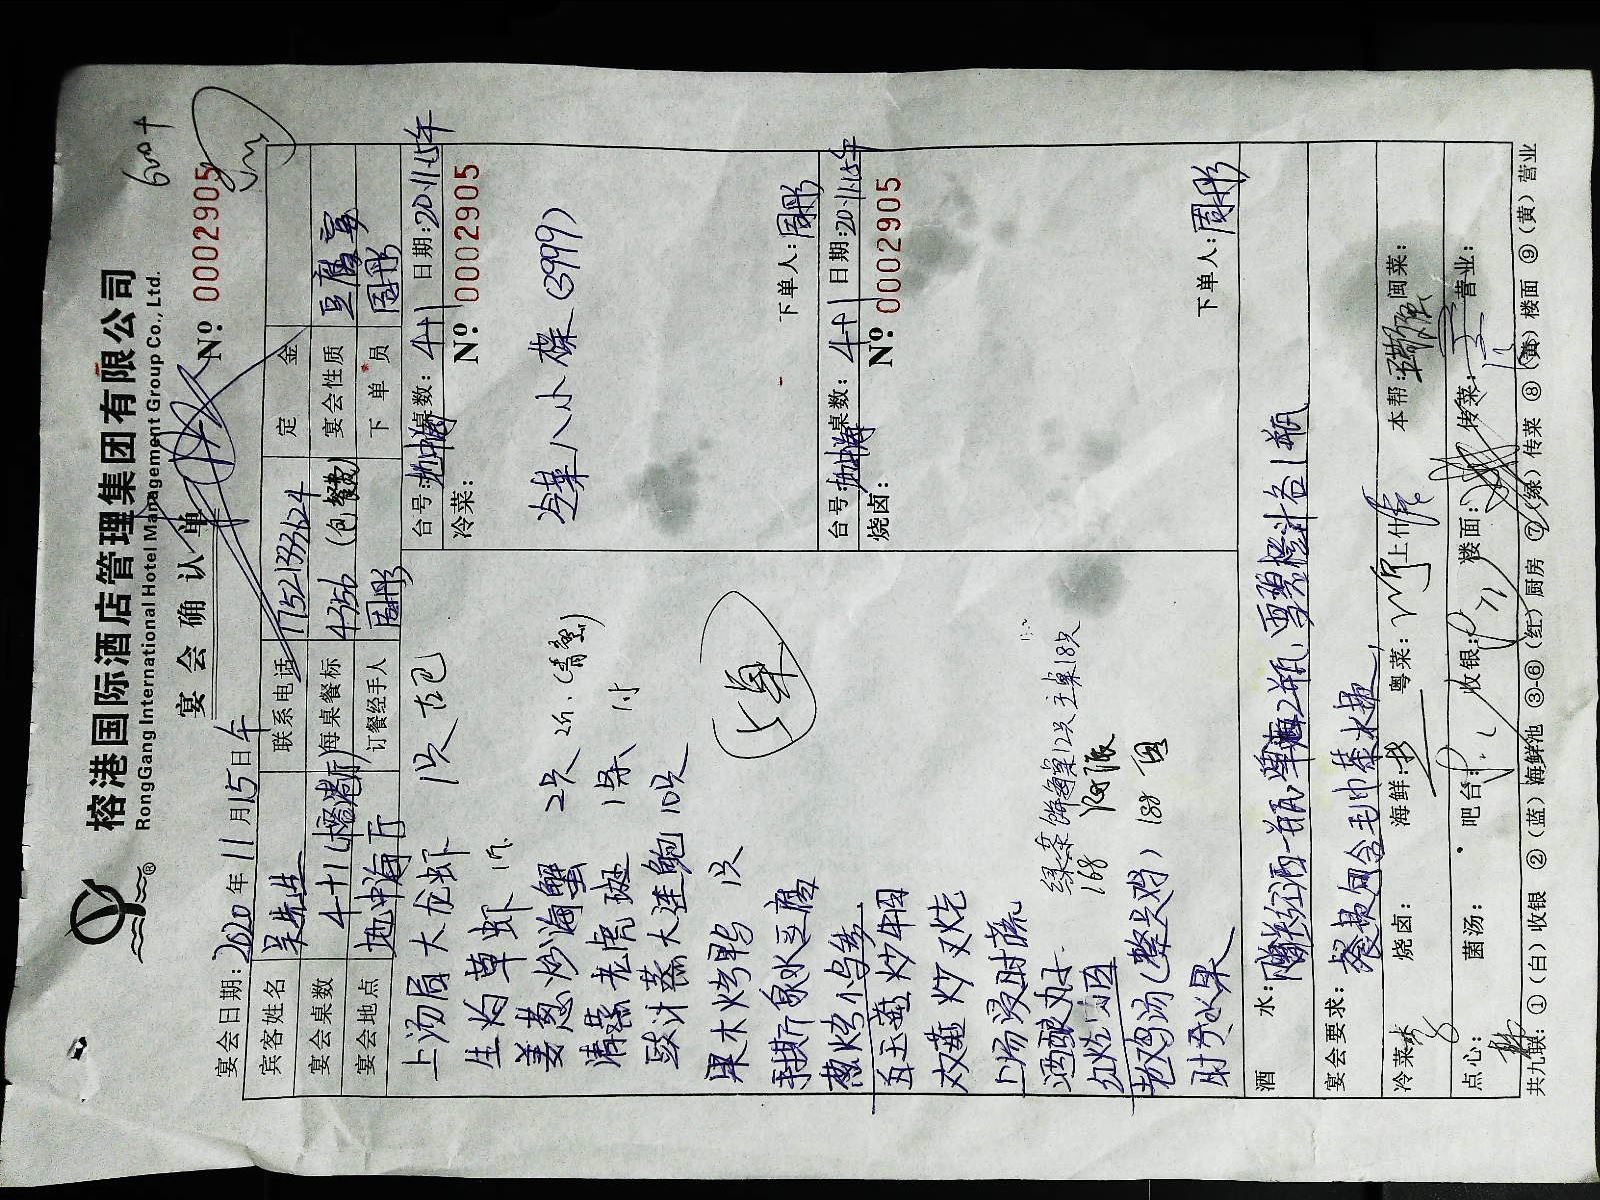 榕港国际酒店管理集团有限公司
RongGang International Hotel Management Group Co., Ltd.
®
600+
宴会确认单
Nº 0002905
宴会日期: 2020年11月15日午
宾客姓名 吴先生 联系电话 17521333624 定金
宴会桌数 4+1 每桌餐标 4356 (包餐费) 宴会性质 豆腐宴
宴会地点 地中海厅 订餐经手人 周彤 下单员 周彤
上汤焗大龙虾 1只 古巴
生灼草虾 1斤
姜葱炒海蟹 2只 2斤
清蒸老虎斑 1条
豉汁蒸大连鲍 10只
果木烤鸭 1只
泉水豆腐
葱烤小乌参
炒牛
双菇炒叉烧
上汤浸时蔬
酒酿丸子
168
红烧
188
老鸡汤(整只鸡)
188
时令水果
台号: 地中海 桌数: 4+1 日期: 20.11.15午
冷菜:
Nº: 0002905
冷菜八小碟 (3999)
下单人: 周彤
台号: 地中海 桌数: 4+1 日期: 20.11.15午
烧卤:
Nº: 0002905
下单人: 周彤
酒水: 红酒一瓶, 2瓶, 雪碧橙汁各1瓶
宴会要求: 餐费包含毛巾茶水费,
冷菜: 烧卤: 海鲜: 粤菜: 上什: 本帮: 闽菜:
点心: 菌汤: 吧台: 收银: 楼面: 传菜: 营业:
共九联: ①(白)收银 ②(蓝)海鲜池 ③-⑥(红)厨房 ⑦(绿)传菜 ⑧(黄)楼面 ⑨(黄)营业